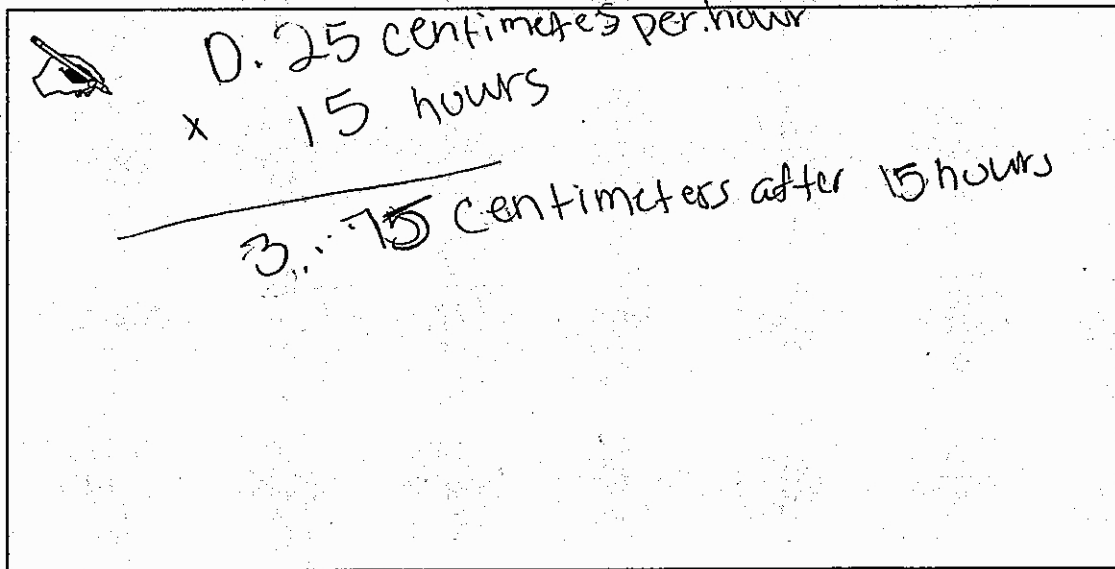 0.25 centimetes per hour
x 15 hours
3.75 centimeters after 15 hours